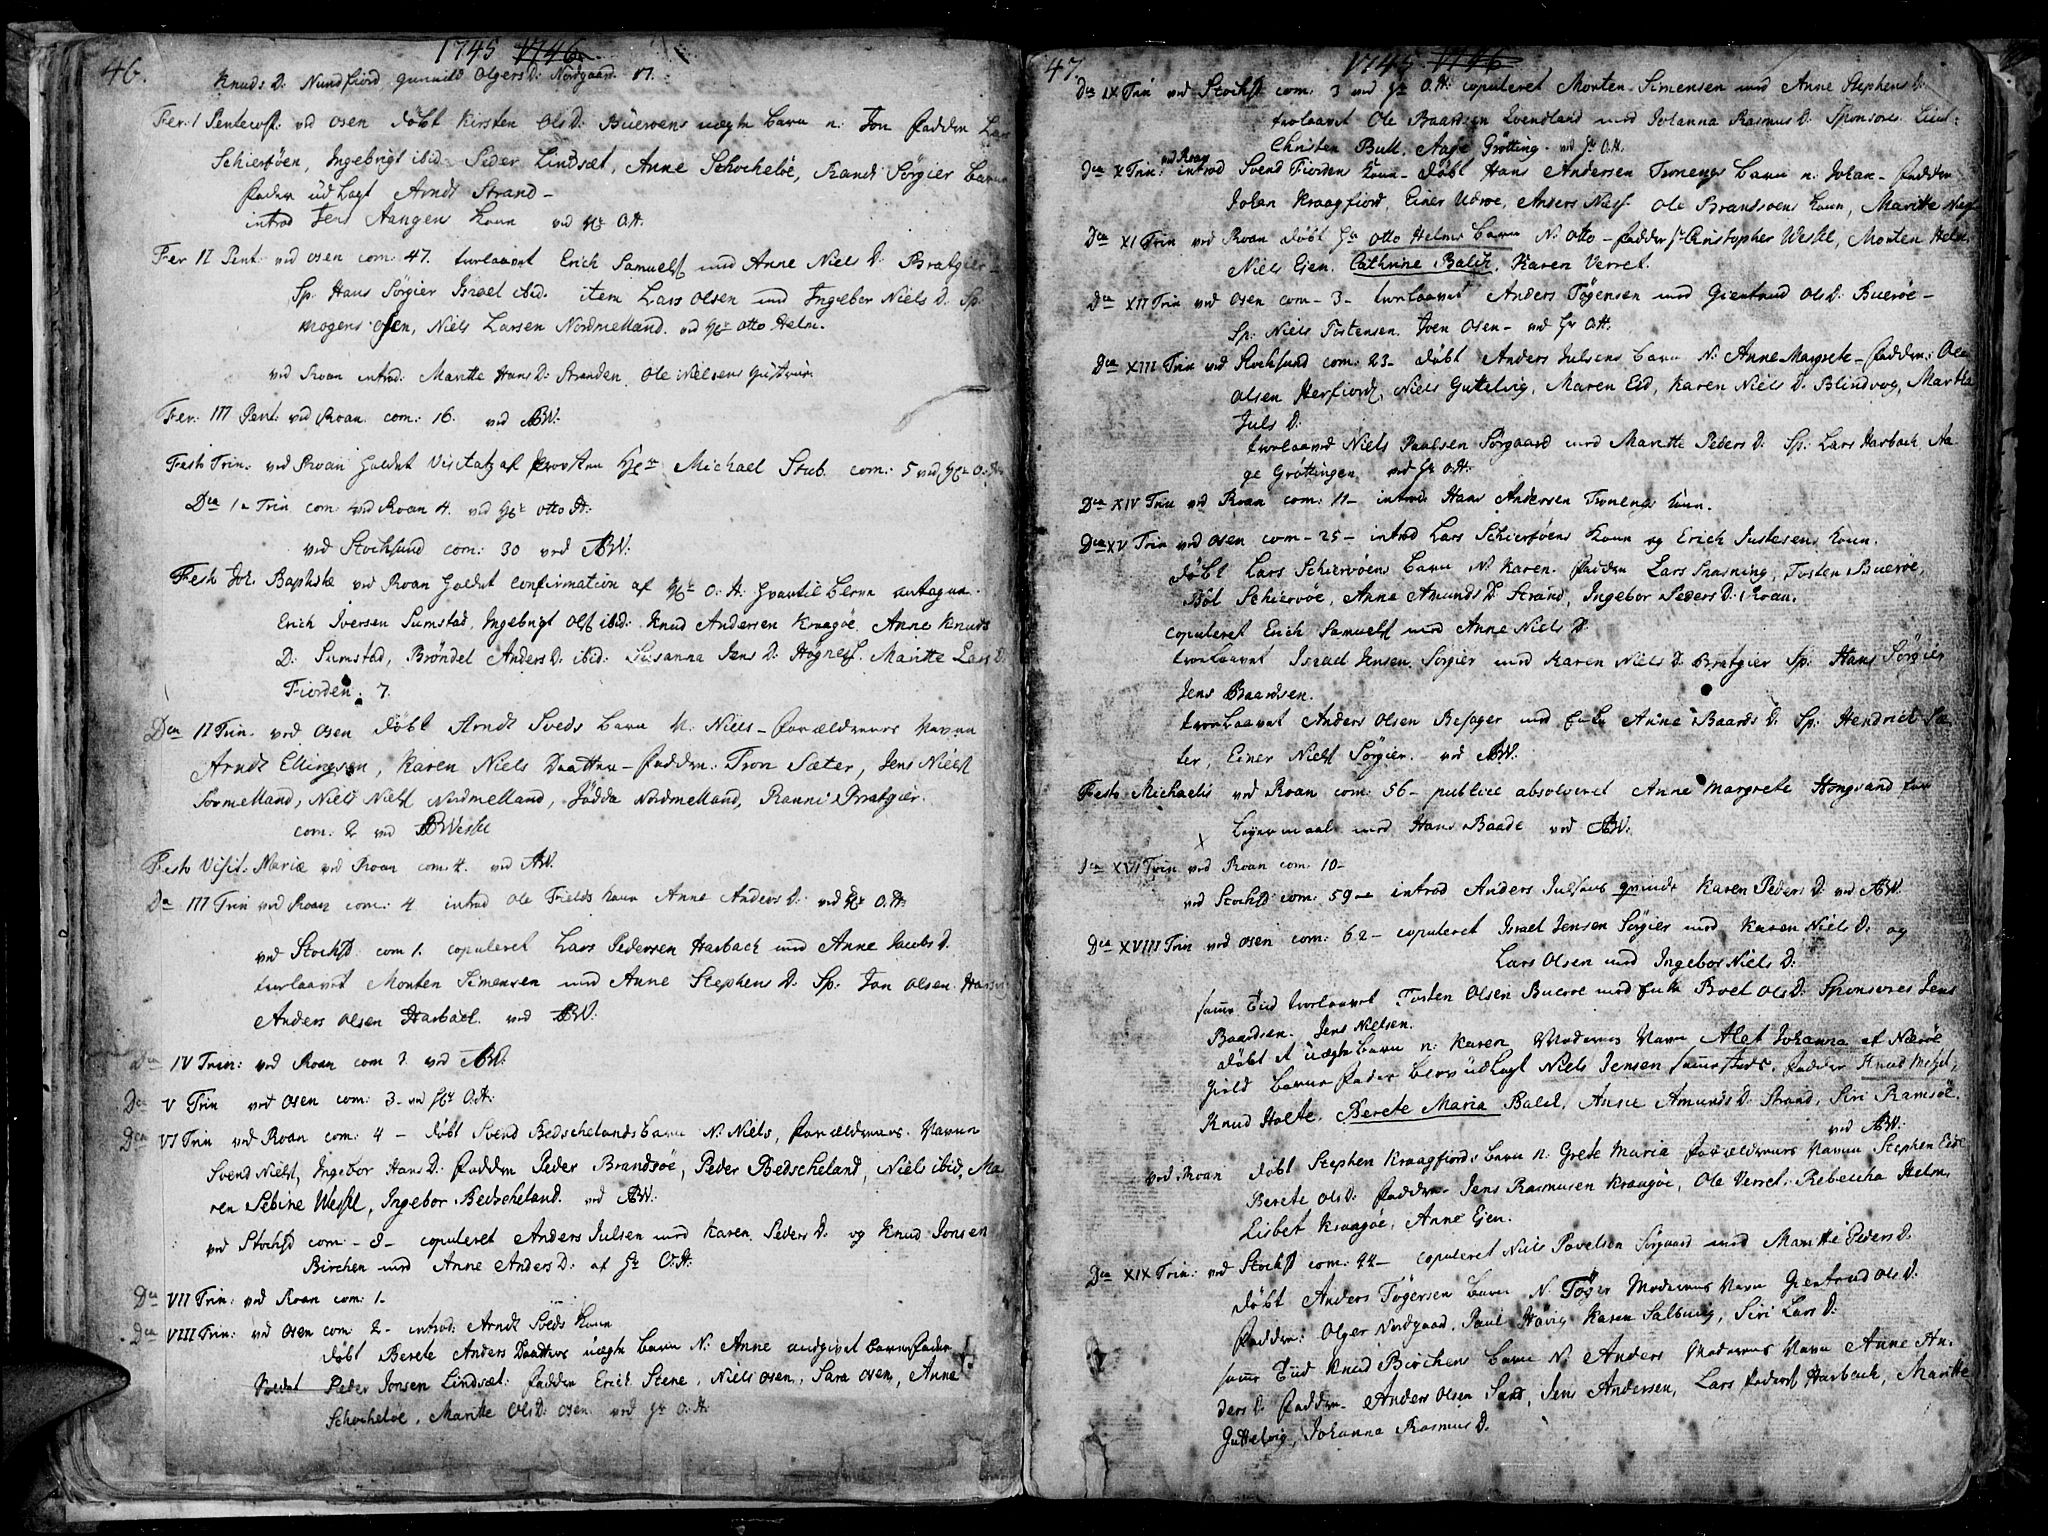 46.
1745 1746
Knuds D: Nundfiord, Gunnild Olgers D: Nordgaard. 17.
Fer: 1 Pentecost: ved Osen døbt Kirsten Ols D: Bueroens uægte barn n: Jon fadder Lars
Schierföen, Ingebrigt ibid: Peder Lindsæt, Anne Schocheloe, Randi Sørgier barne
fader udlagt Arndt Strand -
introd Jens Aangens Kone ved Hr O.H.
Fer II Pent: ved Osen com: 47. trolaavet Erich Samuels: med Anne Niels D: Bratgier -
Sp: Hans Sørgier Israel ibid. item Lars Olsen med Ingebor Niels D. Sp:
Mogens Osen, Niels Larsen Nordmelland. ved Hr Otto Helm.
ved Roan introd: Maritte Hans D: Stranden, Ole Nielsens hustrue.
Fer: III Pent: ved Roan com: 16. ved ABW.
Festo Trin: ved Roan holdet Visitatz af Provsten Hr Michael Stub com: 5 ved Hr O. H.
Dca 1 a Trin com: ved Roan 4. ved Hr Otto H:
ved Stocksund com: 30 ved ABW:
Festo Joh: Baptistæ ved Roan holdet Confirmation af Hr O: H: hvortil bleve antagne.
Erich Iversen Sumstad, Ingebrigt Ols: ibid: Knud Andersen Kraagöe, Anne Knuds
D: Sumstad, Bröndel Anders D: ibid: Susanna Jens D: Hognes. Maritte Lars D:
Fiorden. 7.
Dca II Trin. ved Osen döbt Arndt Sveds barn N: Niels - forældrenes Navne
Arndt Ellingsen, Karen Niels Daatter - fadder: Tron Sæter, Jens Niels:
Sørmelland, Niels Niels: Nordmelland, Jödda Nordmelland, Ranni Bratgier.
com: 2 ved ABWessel
Festo Visit: Mariæ ved Roan com: 4. ved ABW.
Dca III Trin ved Roan com: 4 introd Ole Fields kone Anne Anders D: ved Hr O.H.
ved Stochsd com 1. copuleret Lars Pedersen Harbach med Anne Jacobs D.
trolaavet Morten Simensen med Anne Stephens D. Sp: Jon Olsen
Anders Olsen Harbach. ved ABW.
Dca IV Trin: ved Roan com 3 ved ABW.
Dca V Trin ved Osen com: 3 - ved Hr O.H:
Dca VI Trin ved Roan com: 4 - döbt Svend Bedschelands barn N: Niels, forældrenes Navne
Svend Niels:, Ingebor Hans D: fadder Peder Brandsöe, Peder Bedscheland, Niels ibid, Ma-
ren Sebine Wessel, Ingebor Bedscheland. ved ABW.
ved Stochsd com - 8 - copuleret Anders Julsen med Karen Peders D. og Knud Jonsen
Birchen med Anne Anders D: af Hr O.H.
Dca VII Trin: ved Roan com: 1 -
Dca VIII Trin: ved Osen com: 2 - introd: Arndt Sveds kone
döbt Berete Anders Daatters uægte barn N: Anne angivet barnefader
Soldat Peder Jonsen Lindsæt: fadder Erich Stene, Niels Osen, Sara Osen, Anne
Schocheloe, Maritte Ols D: Osen. ved Hr O: H.
47.
1745 1746
Dca IX Trin ved Stochsd com: 3 ved Hr O.H: copuleret Morten Simensen med Anne Stephens D:
trolaavet Ole Baardsen Qvendland med Johanna Rasmus D: Sponsores Lieut:
Christen Bull, Aage Grötting. ved Hr O.H.
Dca X Trin: ved Roan introd Svend Fiordens kone - döbt Hans Andersen Tronengs barn n: Johan - fadder
Johan Kraagfiord, Einer Udroe, Anders Nes: Ole Brandsøens kone, Maritte Nes:
Dca XI Trin ved Roan döbt Hr Otto Helms barn N: Otto - fadder Hr Christopher Wessel, Morten Helm,
Niels Ejen. Cathrine Balch, Karen Verret.
Dca XII Trin ved Osen com - 3 - trolaavet Anders Töjersen med Giertrud Ols D: Bueröe -
Sp: Niels Tostensen. Joen Osen - ved Hr O.H.
Dca XIII Trin ved Stochsund com: 23 - döbt Anders Julsens barn N: Anne Margrete - fadder: Ole
Olsen Herfiord, Niels Guttelvig, Maren Eid, Karen Niels D. Blindvog, Martha
Juls D:
trolaavet Niels Paalsen Sørgaard med Maritte Peders D: Sp: Lars Harbach, Aa-
ge Grottingen. ved Hr O.H.
Dca XIV Trin ved Roan com: 11 - introd: Hans Andersen Tronengs kone.
Dca XV Trin ved Osen com - 25 - introd Lars Schierföens kone og Erich Justesens kone.
döbt Lars Schiervöens barn N: Karen. fadder Lars Snasning, Tosten Bueröe,
Böl Schiervöe, Anne Amunds D. Strand, Ingebor Peders D: Roan.
copuleret Erich Samuels: med Anne Niels D:
trolaavet Israel Jensen Sørgier med Karen Niels D. Bratgier Sp: Hans Sørgier
Jens Baardsen.
trolaavet Anders Olsen Besager med Enke Anne Baards D. Sp: Hendrich Sæ-
ter, Einer Niels: Sørgier. ved ABW:
Festo Michaelis ved Roan com: 56 - publice absolveret Anne Margrete Hongsand for
Leyermaal med Hans Baade ved ABW.
Dca XVI Trin ved Roan com: 10 -
ved Stochsd: com: 59 - introd Anders Julsens qvinde Karen Peders D: ved ABW.
Dca XVIII Trin ved Osen com: 62 - copuleret Israel Jensen Sørgier med Karen Niels D: og
Lars Olsen med Ingebor Niels D:
samme Tiid trolaavet Tosten Olsen Bueroe med Enke Broel Ols D: Sponsores Jens
Baardsen. Jens Nielsen.
döbt et uægte barn n: Karen Moderens Navn Alet Johanna af Nærøe
gield barnefader blev udlagt Niels Jensen sammestæds. fadder Knud Metzel,
Knud Holte, Berete Maria Balch, Anne Amunds D. Strand, Siri Ramsöe.
ved ABW:
ved Roan döbt Stephen Kraagfiords barn n: Grete Maria forældrenes Navne Stephen Eid:
Berete Ols D: fadder - Jens Rasmusen Kraagöe, Ole Verret. Rebeccha Helm,
Lisbet Kraagöe, Anne Ejen.
Dca XIX Trin: ved Stochsd com: 22 - copuleret Niels Povelsen Sörgaard med Maritte Peders D:
döbt Anders Töjersens barn N: Töger Moderens Navn Giertrud Ols D.
fadder: Olger Nordgaard, Paul Høvig Karen Salbuvig, Siri Lars D:
samme Tiid Knud Birchens barn N: Anders Moderens Navn Anne An-
ders D. fadder - Anders Olsen Sand, Jens Andersen, Lars Peders: Harbach, Maritte
Guttelvig, Johanna Rasmus D.